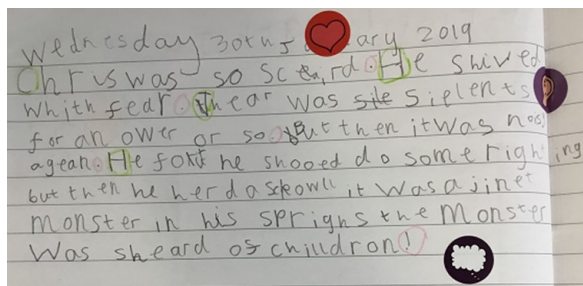 Wednesday 30th J ary 2019
Chris was so scaird. He shived
Whith fear. Thear was sile sielents
for an ower or so. But then it was nois
agean. He fort he shooed do some righting
but then he herd a skowll it was a jinet
monster in his sprighs the monster
Was sheard of chilldron!